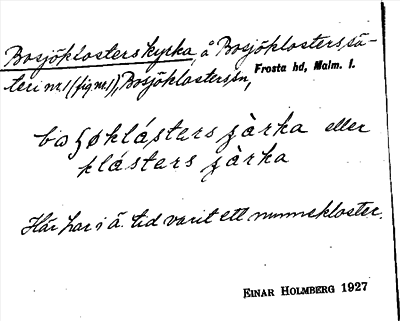 Bosjöklosters kyrka, å Bosjöklosters sä-
teri nr. 1 (fig nr. 1), Bosjöklosters sn, Frosta hd, Malm. l.
klásters
eller
klásters
Här har i ä. tid varit ett nunnekloster.
EINAR HOLMBERG 1927